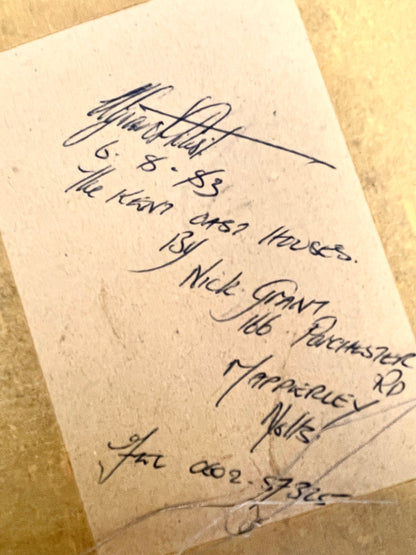 6-8-83
The KENT OAST HOUSES.
By
NICK GRANT
166 PORCHESTER
RD
MAPPERLEY
Notts
0602-57325